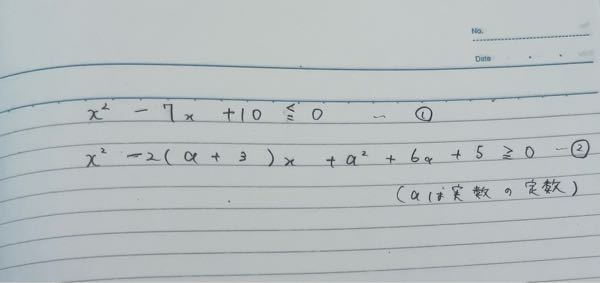 No.
Date
x² - 7x + 10 ≦ 0 … ①
x² - 2(a + 3)x + a² + 6a + 5 ≧ 0 … ②
(aは実数の定数)